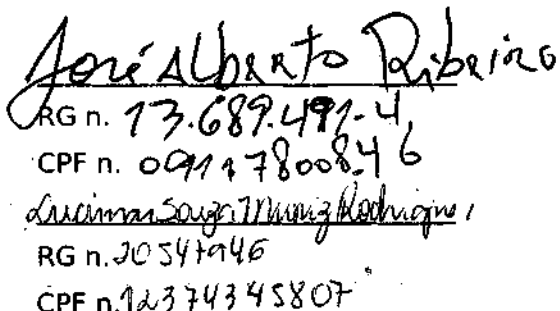 José Alberto Ribeiro
RG n. 13.689.491-4
CPF n. 091178008.46
Lucimar Souza Muniz Rodrigues
RG n. 20547946
CPF n. 12374345807